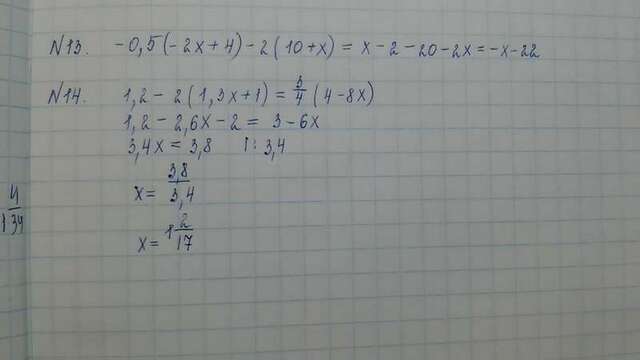 N13. - 0,5(-2x+4) - 2(10+x) = x - 2 - 20 - 2x = -x - 22
N14. 1,2 - 2(1,3x+1) = 3/4 (4 - 8x)
1,2 - 2,6x - 2 = 3 - 6x
3,4x = 3,8 |:3,4
x = 3,8/3,4
x = 1 2/17